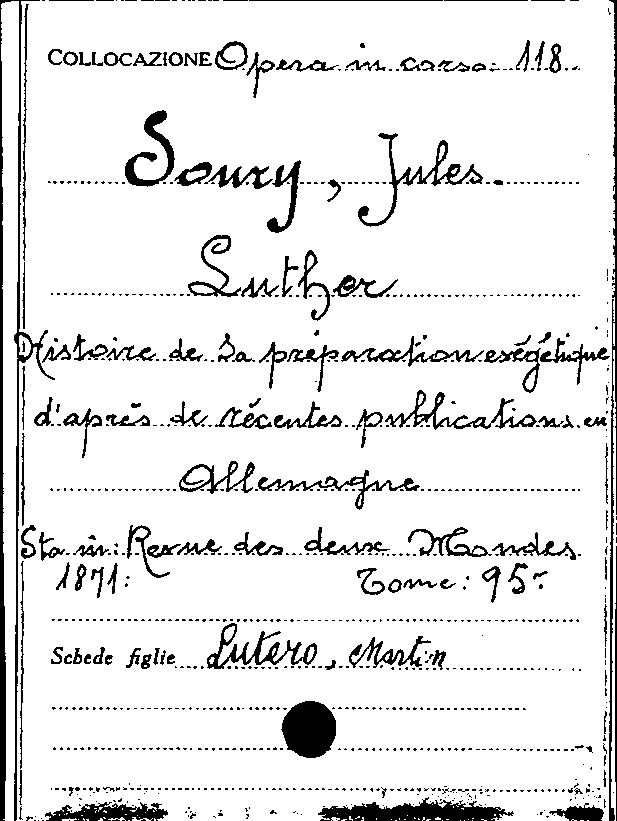 COLLOCAZIONE Opera in corso: 118.
Soury, Jules.
Luther
Histoire de sa préparation exégétique
d'après de récentes publications en
Allemagne
Sta in: Revue des deux Mondes
1871: Tome: 95-
Schede figlie Lutero, Martin